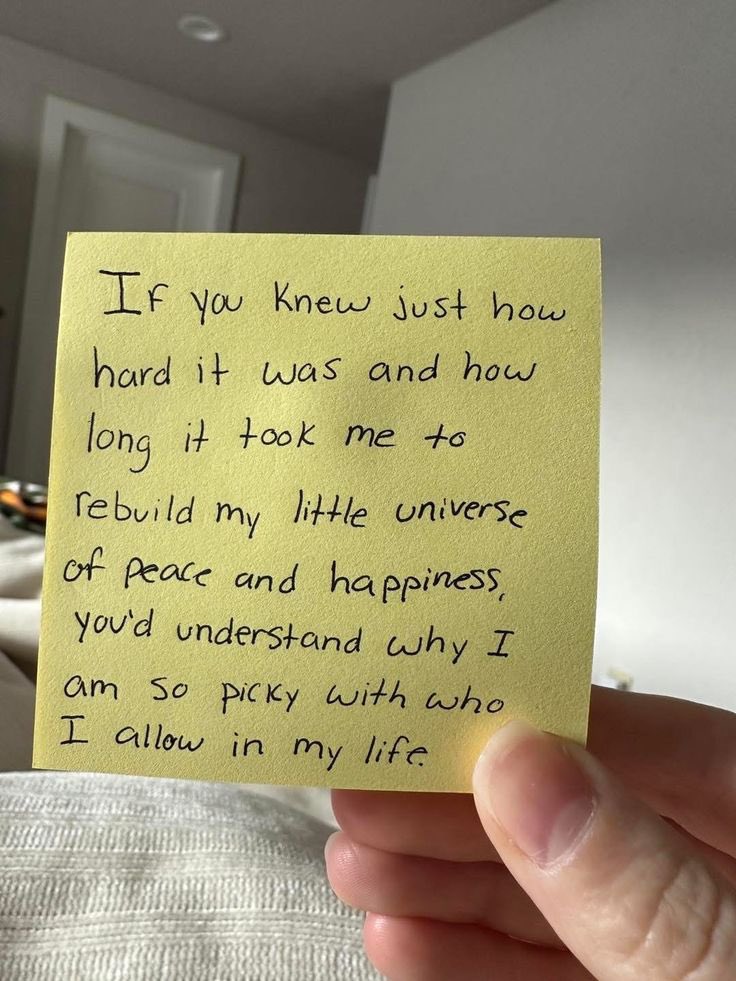 If you knew just how
hard it was and how
long it took me to
rebuild my little universe
of peace and happiness,
you'd understand why I
am so picky with who
I allow in my life.